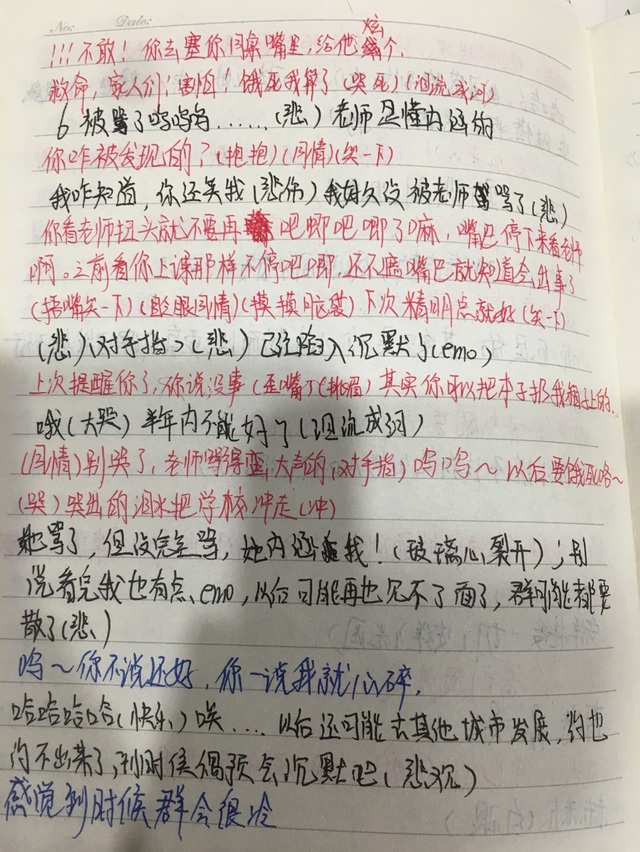 No: Date:
!!!不敢！你去塞你同桌嘴里，给他炫个.
救命，家人们！害怕！饿死我算了（哭死）（泪流成河）
6 被骂了呜呜呜……（悲）老师是懂内涵的
你咋被发现的？（抱抱）（同情）（笑一下）
我咋知道，你还笑我（悲伤）我好久没被老师骂了（悲）
你看老师扭头就不要再吧唧吧唧了嘛，嘴巴停下来看老师
啊。之前看你上课那样不停吧唧，还不临嘴巴就知道会出事了
（捂嘴笑一下）（白眼同情）（摸摸脑袋）下次精明点就好（笑一下）
（悲）（对手指）（悲）已经陷入沉默了（emo）
上次提醒你了，你说没事（歪嘴）（挑眉）其实你可以把本子扔我桶上的…
哦（大哭）半年内不能好了（泪流成河）
（同情）别哭了，老师骂得蛮大声的（对手指）呜呜～以后要饿死咯～
（哭）哭出的泪水把学校冲走（冲）
她骂了，但没完全骂，她内涵我！（玻璃心裂开）；别
说看完我也有点emo，以后可能再也见不了面了，群可能都要
散了（悲）
呜～你不说还好，你一说我就心碎.
哈哈哈哈（快乐）唉....以后还可能去其他城市发展，约也
约不出来了，到时候偶预会沉默吧（悲沉）
感觉到时候群会很冷